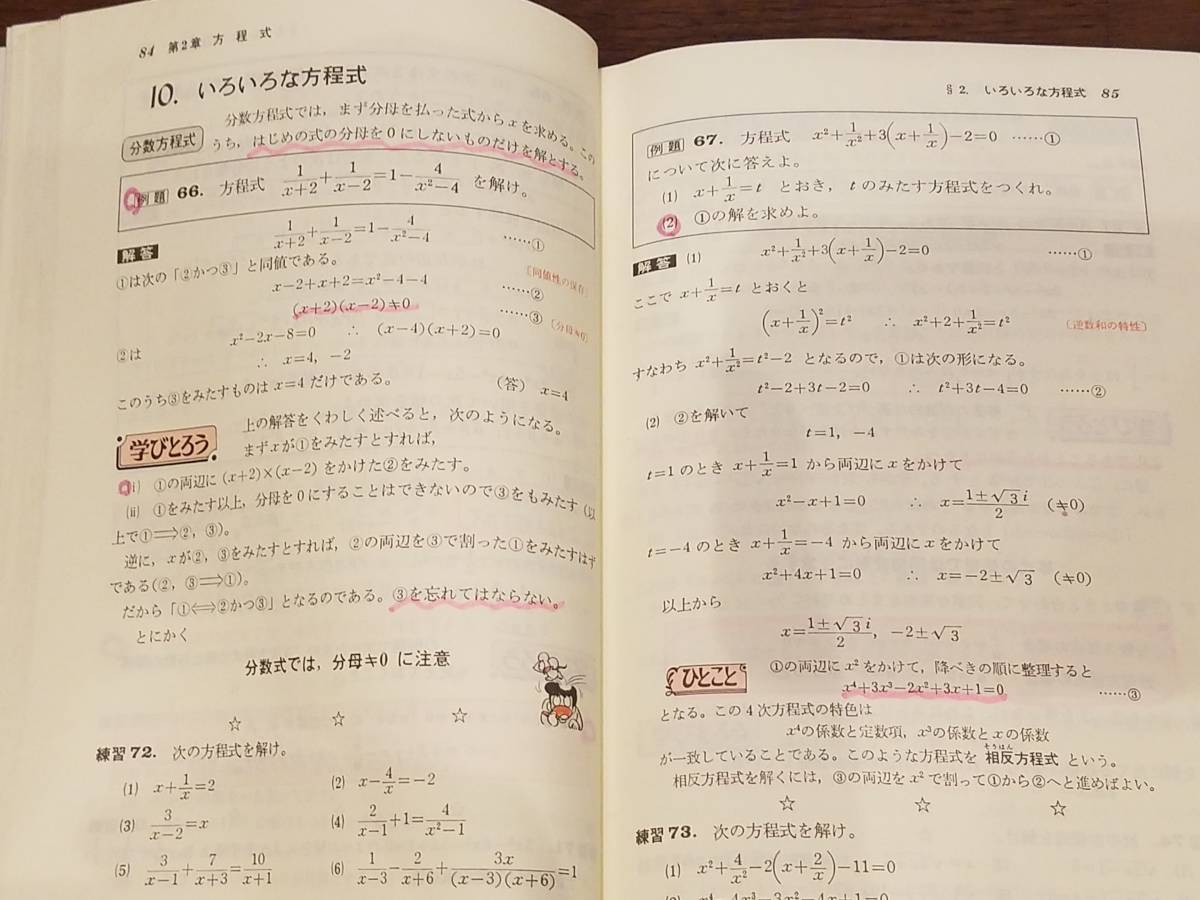 84 第2章 方程式
10. いろいろな方程式
分数方程式
分数方程式では，まず分母を払った式からxを求める。この
うち，はじめの式の分母を0にしないものだけを解とする。
例題 66. 方程式 1/(x+2)+1/(x−2)=1−4/(x²−4) を解け。
解答
1/(x+2)+1/(x−2)=1−4/(x²−4) ……①
①は次の「②かつ③」と同値である。
〔同値性の保存〕
x−2+x+2=x²−4−4 ……②
(x+2)(x−2)≠0 ……③
〔分母≠0〕
②は x²−2x−8=0 ∴ (x−4)(x+2)=0
∴ x=4, −2
このうち③をみたすものは x=4 だけである。 （答） x=4
学びとろう
上の解答をくわしく述べると，次のようになる。
まずxが①をみたすとすれば，
(i) ①の両辺に (x+2)×(x−2) をかけた②をみたす。
(ii) ①をみたす以上，分母を0にすることはできないので③をもみたす（以
上で①⟹②，③）。
逆に，xが②，③をみたすとすれば，②の両辺を③で割った①をみたすはず
である（②，③⟹①）。
だから「①⟺②かつ③」となるのである。③を忘れてはならない。
とにかく
分数式では，分母≠0 に注意
☆ ☆ ☆
練習72. 次の方程式を解け。
(1) x+1/x=2 (2) x−4/x=−2
(3) 3/(x−2)=x (4) 2/(x−1)+1=4/(x²−1)
(5) 3/(x−1)+7/(x+3)=10/(x+1) (6) 1/(x−3)−2/(x+6)+3x/((x−3)(x+6))=1
§2. いろいろな方程式 85
例題 67. 方程式 x²+1/x²+3(x+1/x)−2=0 ……①
について次に答えよ。
(1) x+1/x=t とおき，t のみたす方程式をつくれ。
(2) ①の解を求めよ。
解答 (1) x²+1/x²+3(x+1/x)−2=0 ……①
ここで x+1/x=t とおくと
(x+1/x)²=t² ∴ x²+2+1/x²=t² 〔逆数和の特性〕
すなわち x²+1/x²=t²−2 となるので，①は次の形になる。
t²−2+3t−2=0 ∴ t²+3t−4=0 ……②
(2) ②を解いて
t=1, −4
t=1のとき x+1/x=1 から両辺に x をかけて
x²−x+1=0 ∴ x=(1±√3 i)/2 (≠0)
t=−4のとき x+1/x=−4 から両辺に x をかけて
x²+4x+1=0 ∴ x=−2±√3 (≠0)
以上から
x=(1±√3 i)/2, −2±√3
ひとこと
①の両辺に x² をかけて，降べきの順に整理すると
x⁴+3x³−2x²+3x+1=0 ……③
となる。この4次方程式の特色は
x⁴の係数と定数項，x³の係数とxの係数
が一致していることである。このような方程式を 相反方程式 という。
そうはん
相反方程式を解くには，③の両辺をx²で割って①から②へと進めばよい。
☆ ☆ ☆
練習73. 次の方程式を解け。
(1) x²+4/x²−2(x+2/x)−11=0